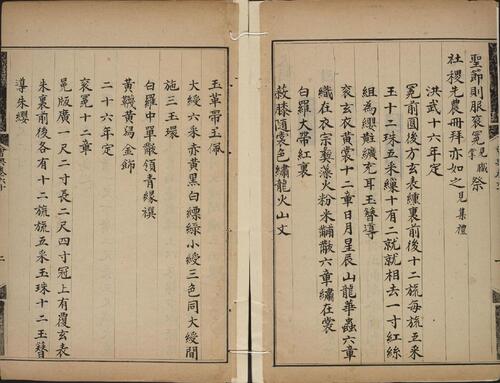 聖節則服袞冕見職掌祭
社稷先農冊拜亦如之見集禮
洪武十六年定
冕前圓後方玄表纁裏前後十二旒每旒五采
玉十二珠五采繅十有二就就相去一寸紅絲
組為纓黈纊充耳玉簪導
袞玄衣黃裳十二章日月星辰山龍華蟲六章
織在衣宗彝藻火粉米黼黻六章繡在裳
白羅大帶紅裏
蔽膝隨裳色繡龍火山文
玉革帶玉佩
大綬六采赤黃黑白縹綠小綬三色同大綬間
施三玉環
白羅中單黻領青緣襈
黃韈黃舄金飾
二十六年定
袞冕十二章
冕版廣一尺二寸長二尺四寸冠上有覆玄表
朱裏前後各有十二旒旒五采玉珠十二玉簪
導朱纓
二